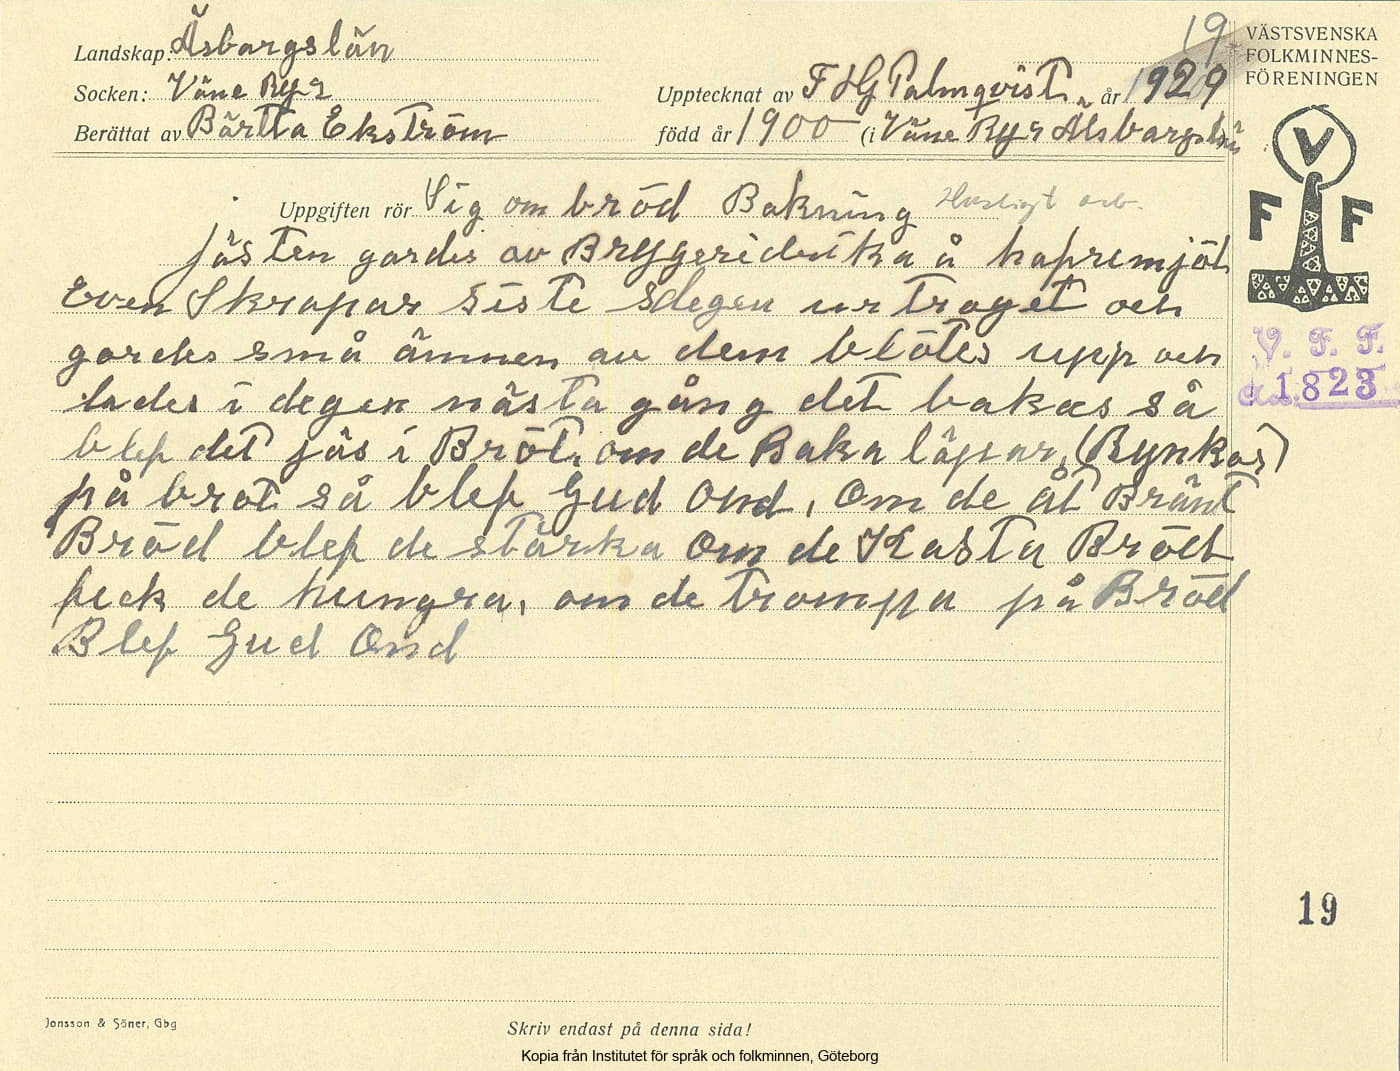 19
VÄSTSVENSKA
FOLKMINNES-
FÖRENINGEN
Landskap: Äsbargslän
Socken: Väne Ryr
Upptecknat av F HG Palmqvist, år 1929
Berättat av Bärtta Ekström
född år 1900 (i Väne Ryr Älsbargslän
V
F F
V. F. F.
1823
Uppgiften rör Sig om bröd Bakning Husligt arb.
jästen gordes av Bryggeridrika å
Even Skrapar siste sdegen ur traget och
gordes små ämnen av dem blötes upp och
lades i degen nästa gång det bakas så
blef det jäs i Bröt. om de Baka läpar, (Rynkor)
på bröt så blef Gud Ond, Om de åt Bränt
Bröd blef de stärka Om de Kasta Bröd
feck de hungra, om de trampa på Bröd
Blef Gud Ond
19
Jonsson & Söner, Gbg
Skriv endast på denna sida!
Kopia från Institutet för språk och folkminnen, Göteborg